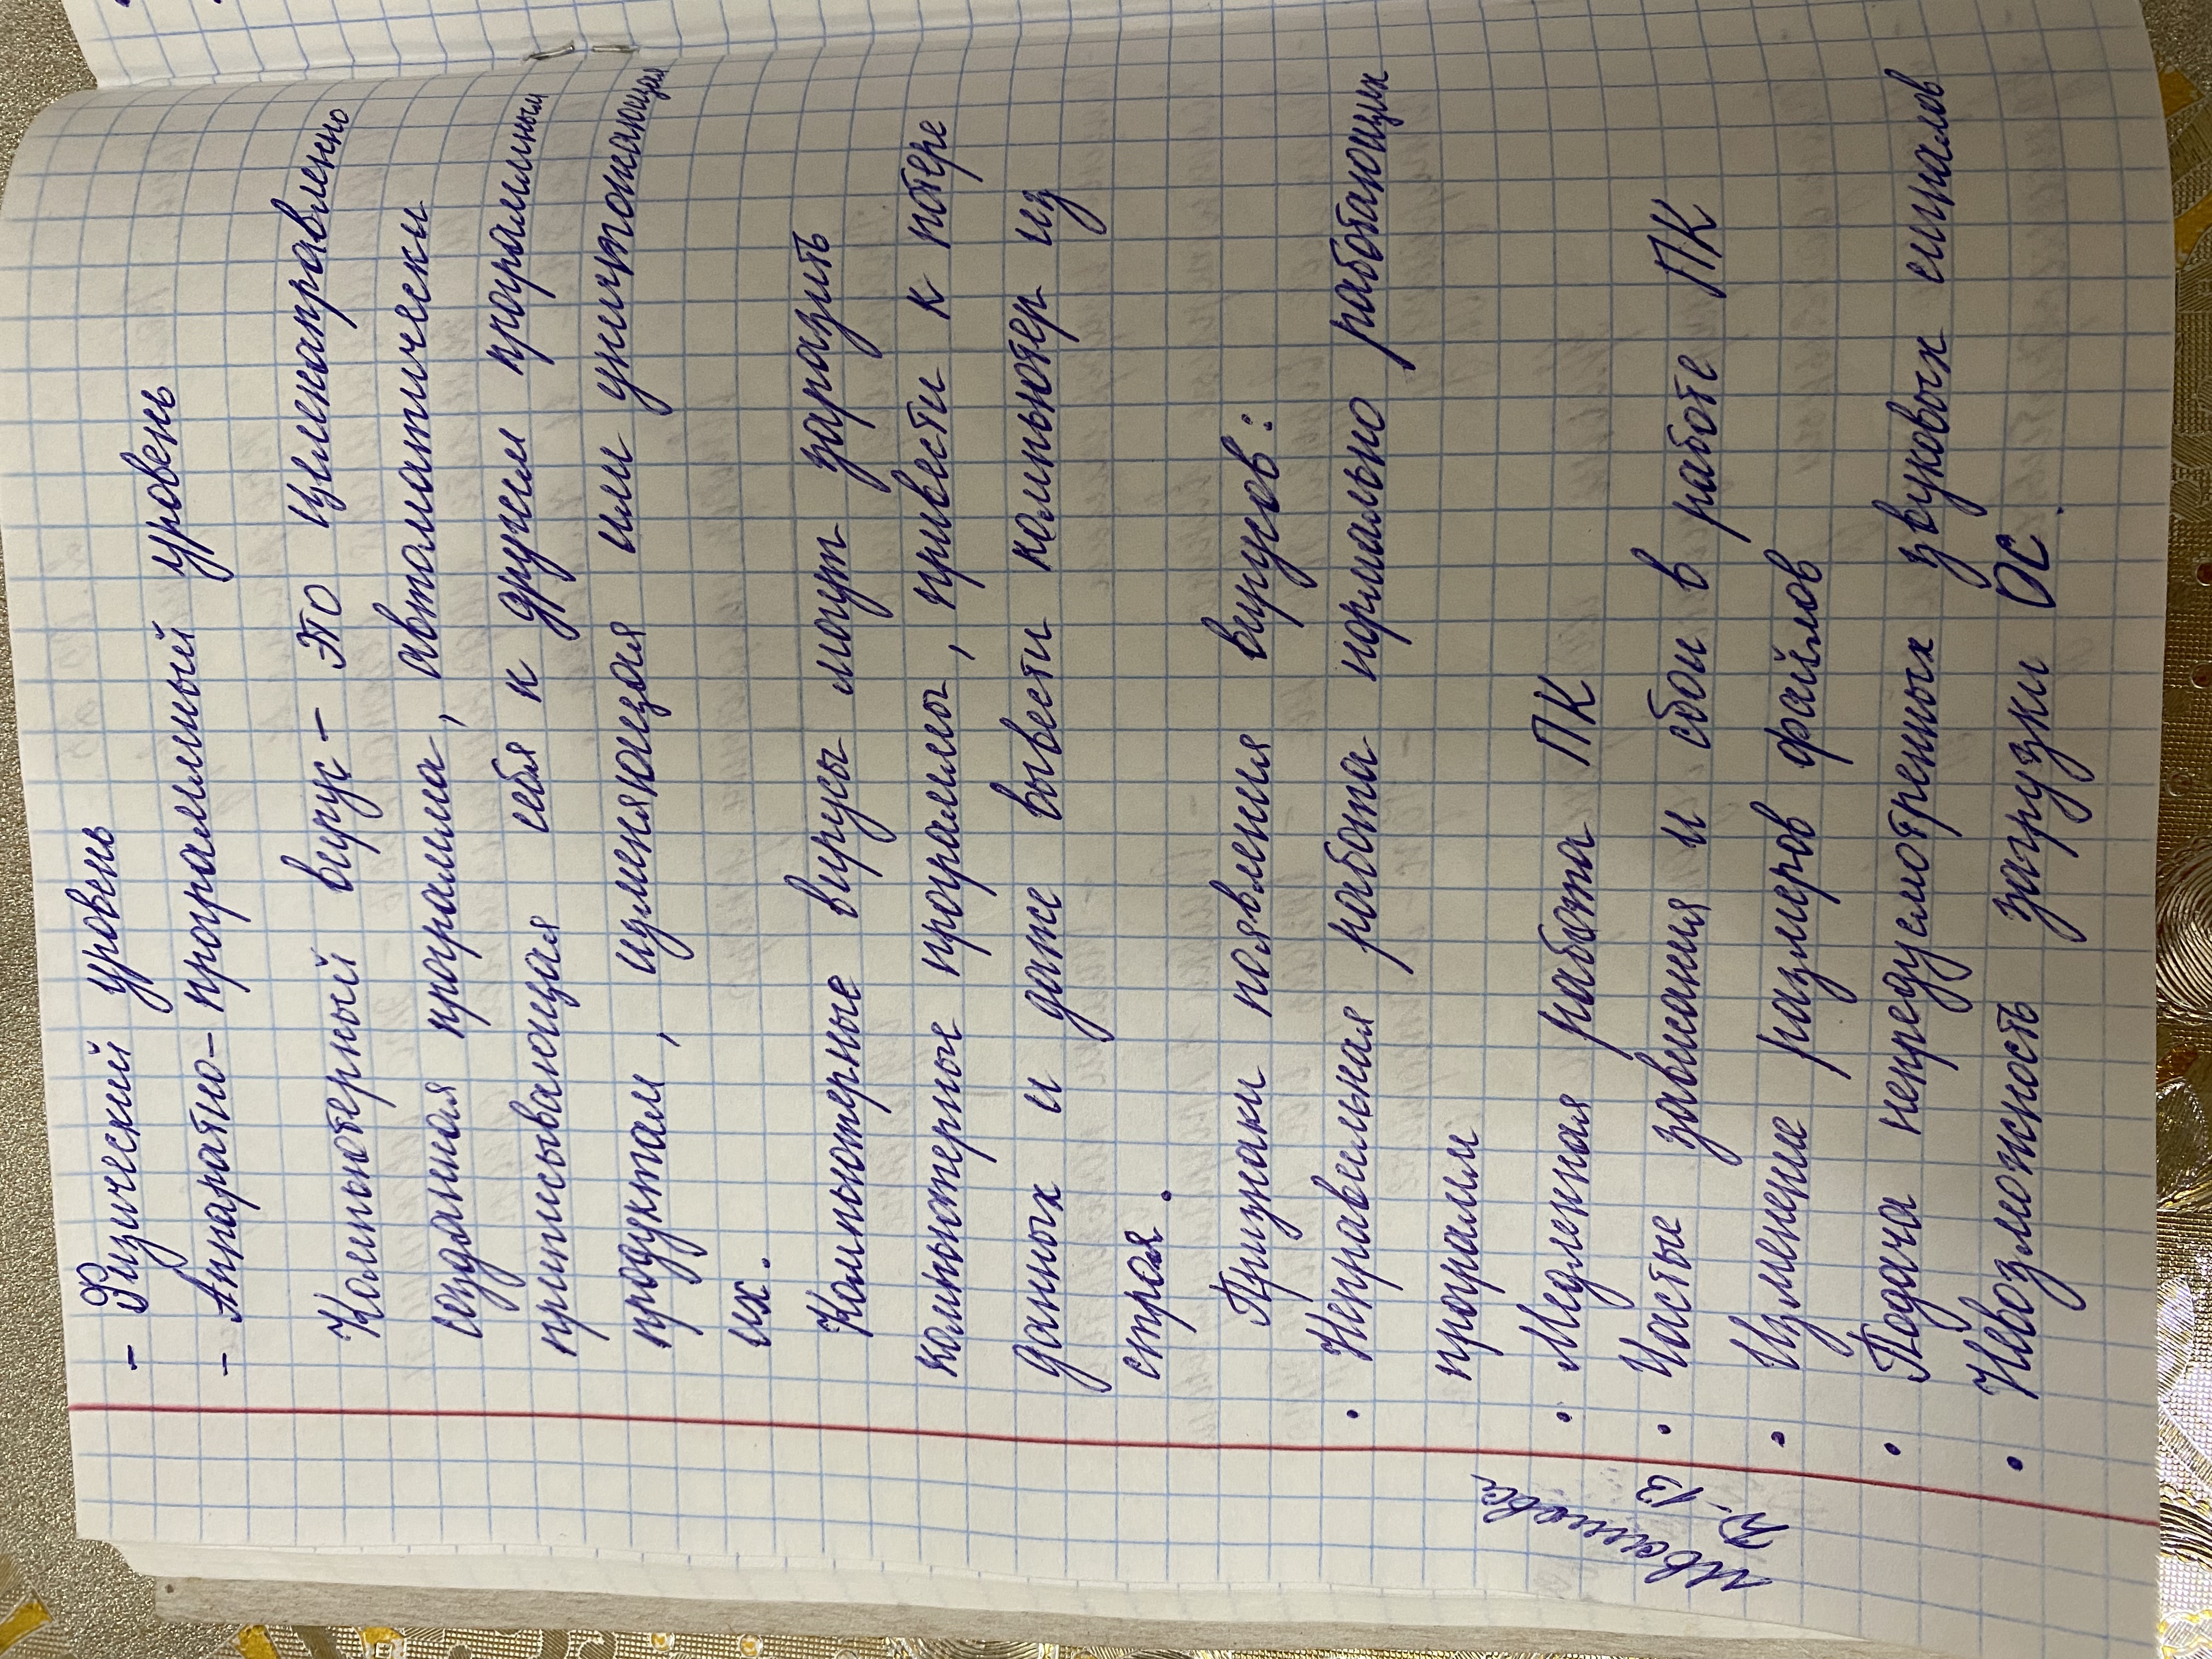 - Физический уровень
- Аппаратно-программный уровень
Компьютерный вирус - это целенаправленно
созданная программа, автоматически
приписывающая себя к другим программным
продуктам, изменяющая или уничтожающая
их.
Компьютерные вирусы могут заразить
компьютерные программы, привести к потере
данных и даже вывести компьютер из
строя.
Признаки появления вирусов:
• Неправильная работа нормально работающих
программ
• Медленная работа ПК
• Частые зависания и сбои в работе ПК
• Изменение размеров файлов
• Подача непредусмотренных звуковых сигналов
• Невозможность загрузки ОС.